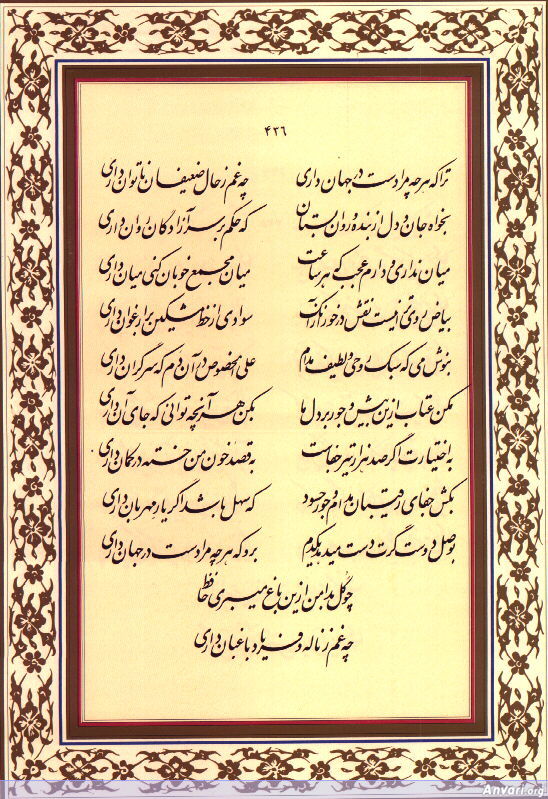 ۴۳۶
ترا که هر چه مرادست در جهان داری چه غم ز حال ضعیفان ناتوان داری
بخواه جان و دل از بنده و روان بستان که حکم بر سر آزادگان روان داری
میان نداری و دارم عجب که هر ساعت میان مجمع خوبان کنی میان داری
بیاض روی ترا نیست نقش درخور از آنک سوادی از خط مشکین بر ارغوان داری
بنوش می که سبک روحی و لطیف مدام علی الخصوص در آن دم که سر گران داری
مکن عتاب ازین بیش و جور بر دل ما بکن هر آنچه توانی که جای آن داری
به اختیارت اگر صد هزار تیر جفاست به قصد خون من خسته در کمان داری
بکش جفای رقیبان مدام و جور حسود که سهل باشد اگر یار مهربان داری
بوصل دوست گرت دست میدهد یکدم برو که هر چه مرادست در جهان داری
چو گل بدامن ازین باغ میبری حافظ
چه غم ز ناله و فریاد باغبان داری
Anvari.org